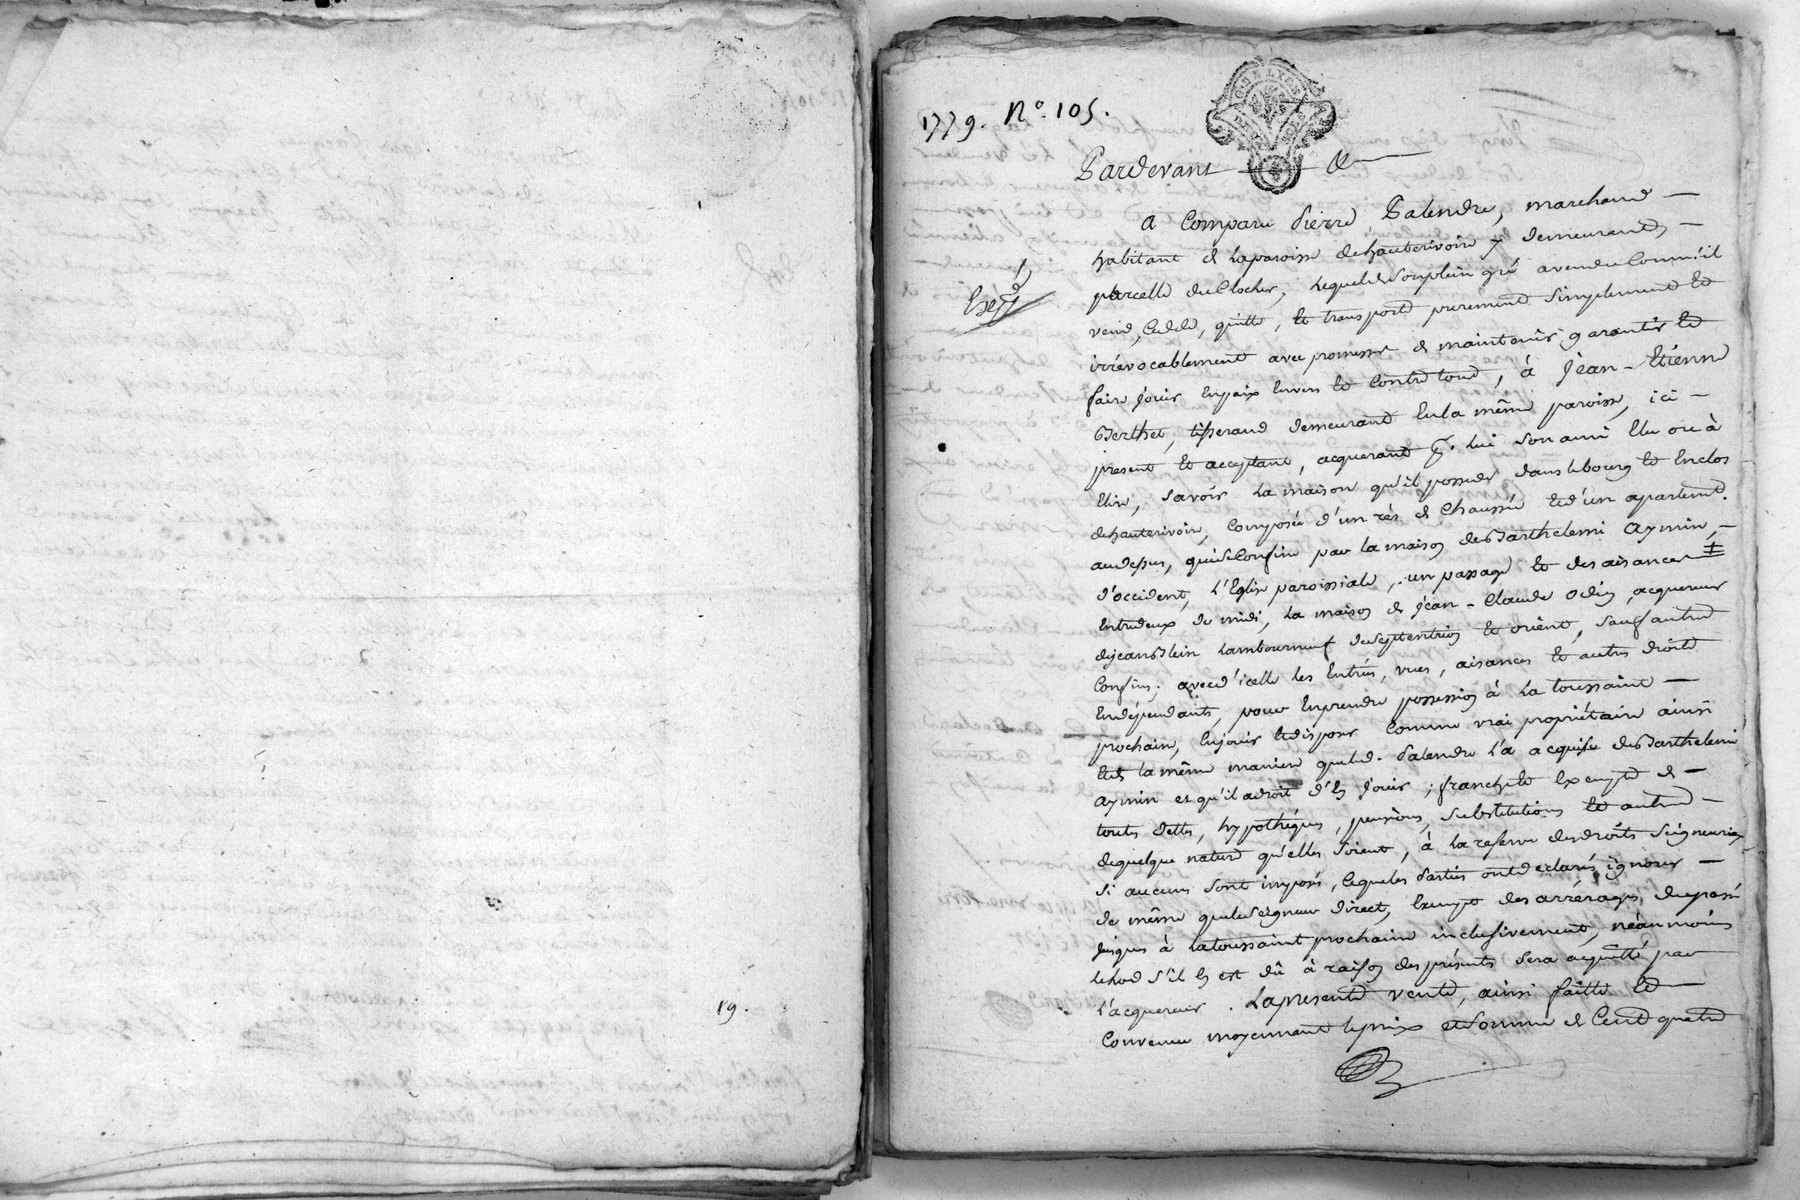 19.
1779. N°. 105.
Pardevant &
A Comparu Pierre Palendre, marchand
habitant de la paroisse de hauterivoire y demeurant,
parcelle du Clocher, Lequel de son plein gré a vendu Comm'il
vend, Cede, quitte, et transporte purement simplement et
irrévocablement avec promesse de maintenir garantir et
faire jouir En paix Envers et Contre tous, à Jean-Etienne
Berthet, tisserand demeurant En la même paroisse, ici
present et acceptant, acquerant pr. Lui son ami Elu ou à
Elire, savoir La maison qu'il possede dans le bourg et Enclos
de hauterivoire, Composée d'un rés de Chaussée et d'un apartemt.
au dessus, qui se Confine par la maison de Barthelemi Aymin,
d'occident, L'Eglise paroissiale, un passage et des aisances
Entredeux de midi, La maison de Jean-Claude Odin, acquereur
de jean Blein de septentrion et orient, sauf autres
Confins; avec d'icelle les Entrées, vues, aisances et autres droits
En dépendants, pour En prendre possession à La toussaint
prochaine, En jouir et disposer Comme vrai propriétaire ainsi
Et de la même maniere que led. Palendre L'a acquise de Barthelemi
Aymin et qu'il a droit d'En Jouir; franche et Exempte de
toutes dettes, hypothéques, pensions, substitutions et autres
de quelque nature qu'elles soient, à La reserve des droits seigneuriaux
si aucuns sont imposés, lesquels Parties ont declarés ignorer
de même que le seigneur direct, Exempte des arrérages du passé
jusques à La toussaint prochaine inclusivement, néanmoins
Le lod s'il En est dû à raison des présentes sera acquitté par
L'acquereur. La presente vente, ainsi faitte et
Convenue moyennant le prix et somme de Cent quatre